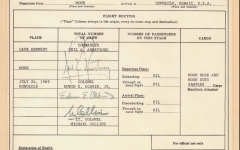 Departure From: MOON
HONOLULU, HAWAII, U.S.A.
FLIGHT ROUTING
("Place" Column always to list origin, every en-route stop and destination)
NUMBER OF PASSENGERS
ON THIS STAGE
Cargo
CAPE KENNEDY
COMMANDER
NEIL A. ARMSTRONG
MOON
JULY 24, 1969
HONOLULU
COLONEL
EDWIN E. ALDRIN, JR.
LT. COLONEL
MICHAEL COLLINS
Departure Place:
Embarking NIL
Through on
same flight NIL
Arrival Place:
Disembarking NIL
Through on
same flight NIL
MOON ROCK AND
MOON DUST
SAMPLES
Cargo
Manifests Attached